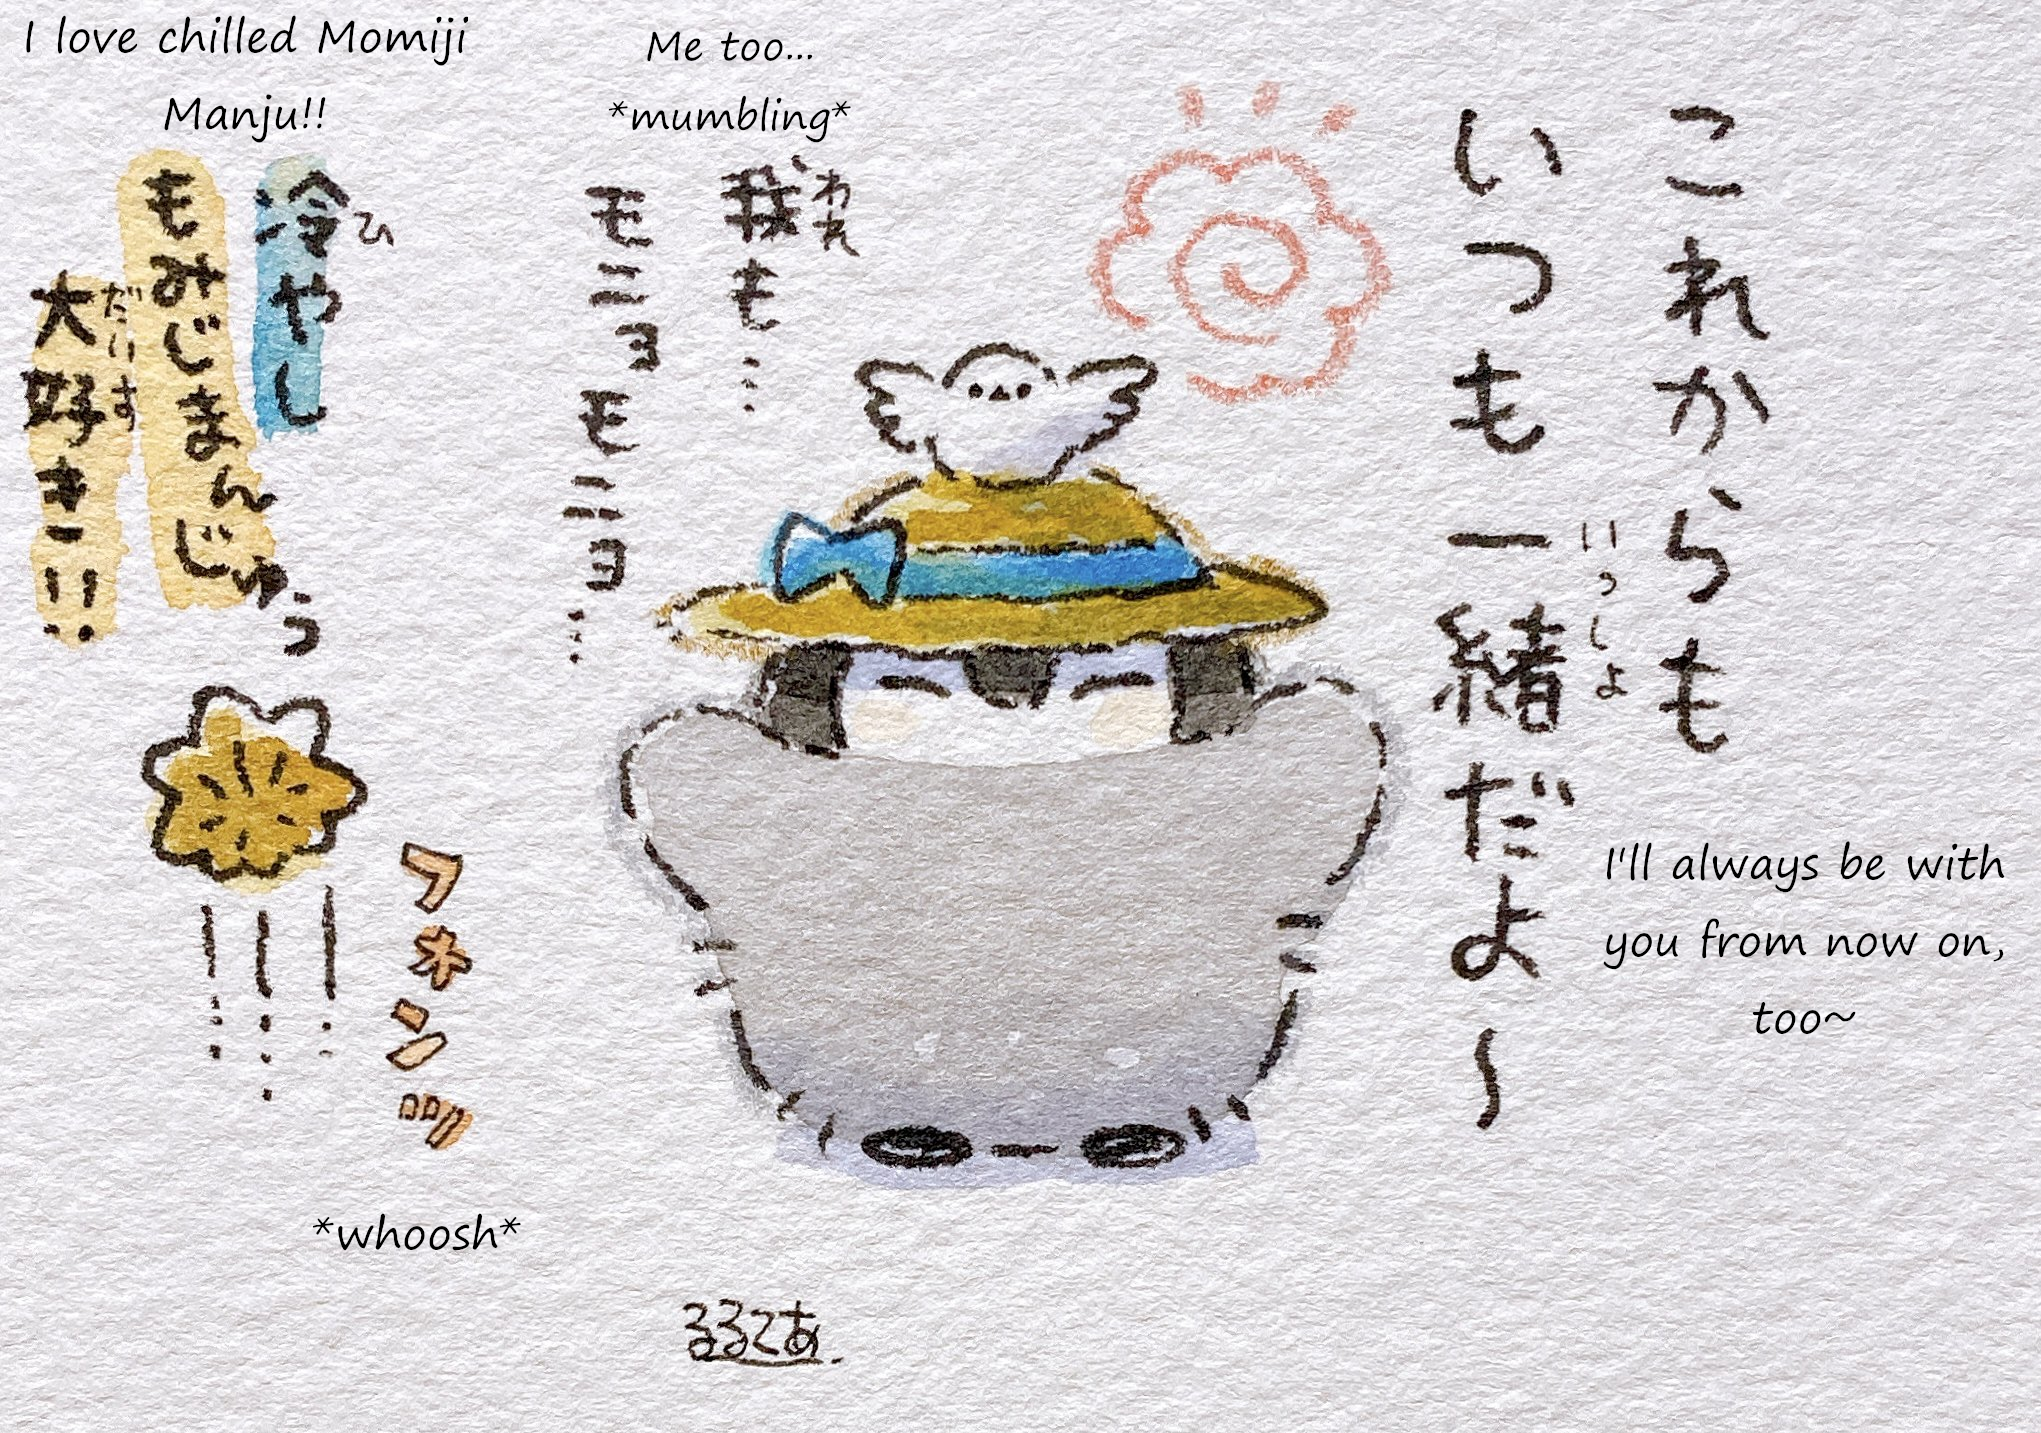 I love chilled Momiji
Manju!!
Me too...
*mumbling*
これからも
いつも一緒だよ〜
いっしょ
I'll always be with
you from now on,
too~
我も…
われ
モニョモニョ…
冷やし
ヒ
もみじまんじゅう
大好き!!
だいす
*whoosh*
るるてあ